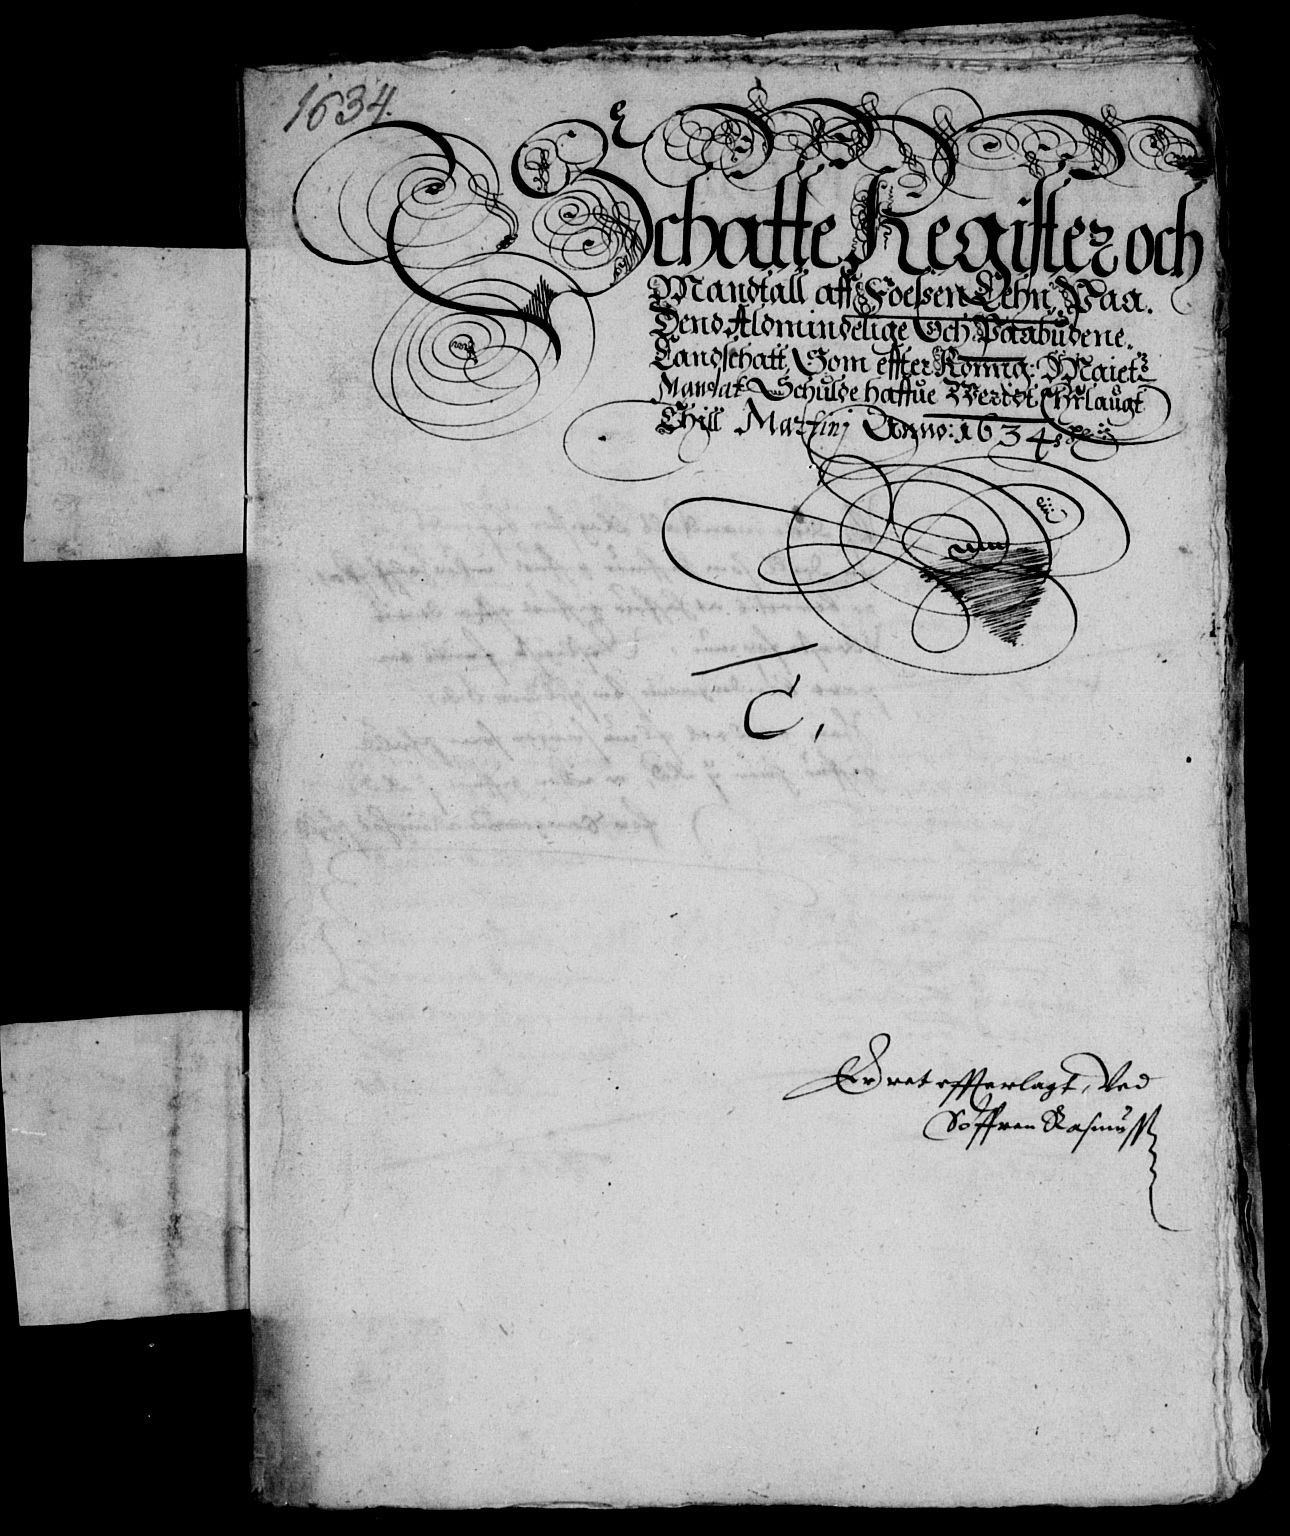 1634.
Schatte Register och
Mandtall aff Foessen Lehn, Paa.
Dend Aldmindelige Och Paabudene.
Landschatt, Som effter Konng: Maietz
Mandat Schulde haffue Verret Erlaugt
Thill Martinj Anno: 1634
C,
Er ret effterlagt, Ved
Søffren Rasmuss